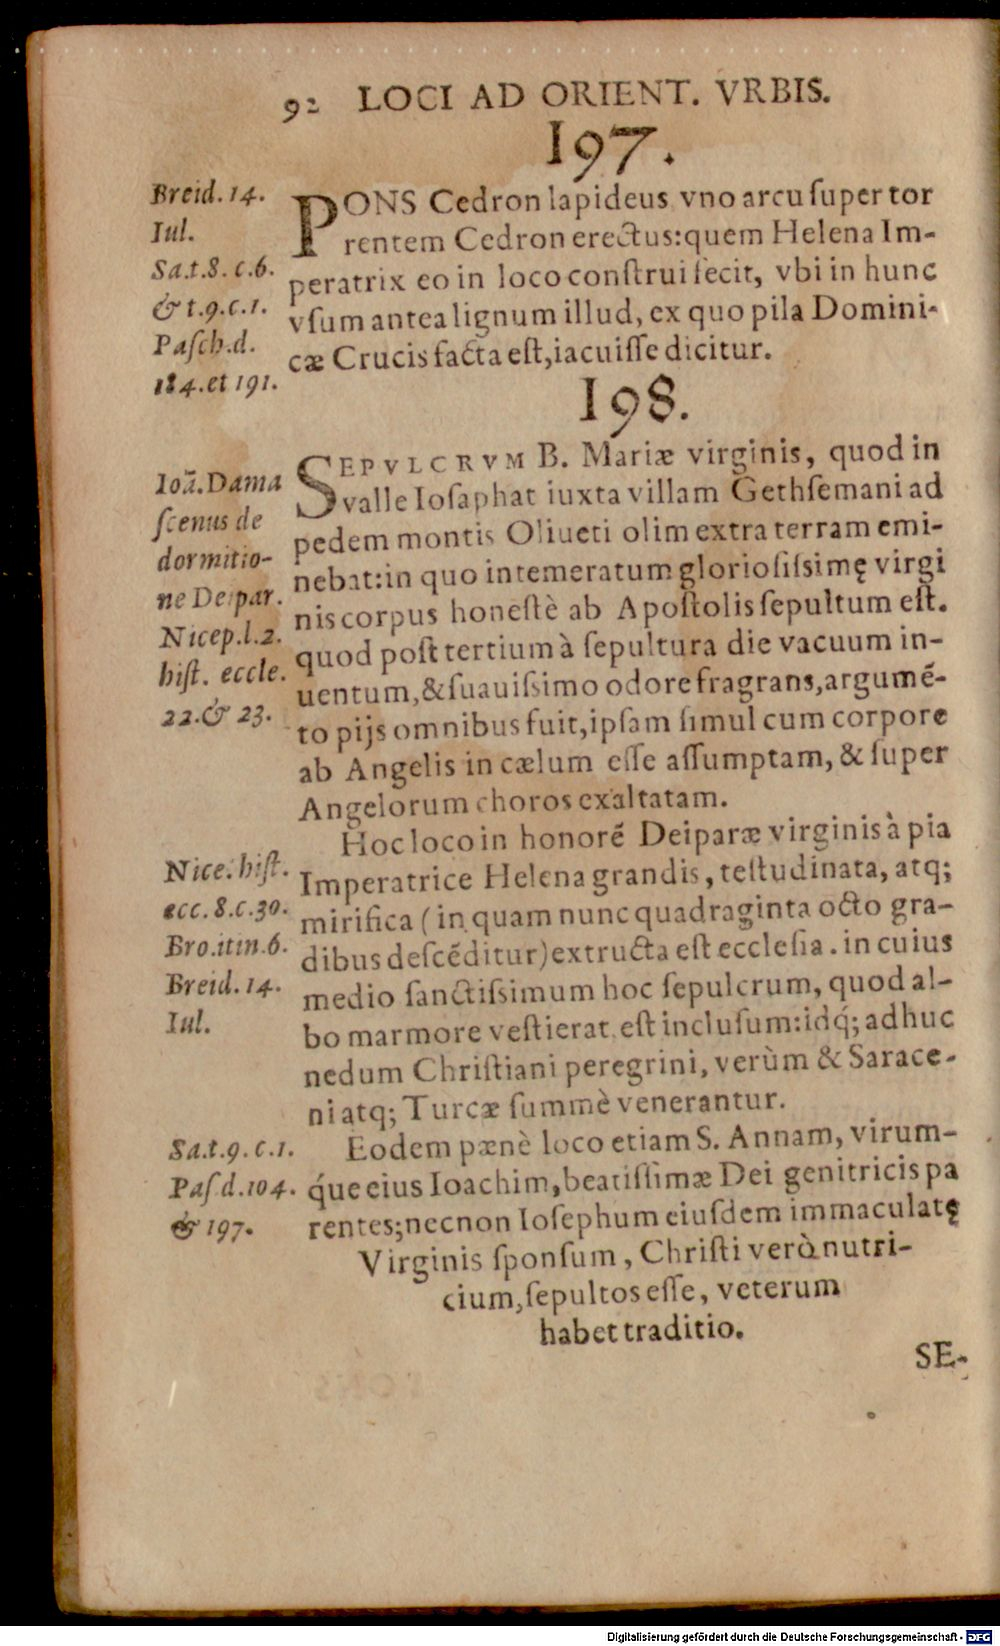 92 LOCI AD ORIENT. VRBIS.
197.
Breid. 14.
Iul.
Sa.t.8. c.6.
& t.9.c.1.
Paſch.d.
184.et 191.
PONS Cedron lapideus vno arcu ſuper tor
rentem Cedron erectus:quem Helena Im-
peratrix eo in loco conſtrui fecit, vbi in hunc
vſum antea lignum illud, ex quo pila Domini-
cæ Crucis facta eſt,iacuiſſe dicitur.
198.
Ioã.Dama
ſcenus de
dormitio-
ne Deipar.
Nicep.l.2.
hiſt. eccle.
22.& 23.
SEPVLCRVM B. Mariæ virginis, quod in
valle Ioſaphat iuxta villam Gethſemani ad
pedem montis Oliueti olim extra terram emi-
nebat:in quo intemeratum glorioſiſsimę virgi
nis corpus honeſtè ab Apoſtolis ſepultum eſt.
quod poſt tertium à ſepultura die vacuum in-
uentum,&ſuauiſsimo odore fragrans,argumẽ-
to pijs omnibus fuit,ipſam ſimul cum corpore
ab Angelis in cælum eſſe aſſumptam, & ſuper
Angelorum choros exaltatam.
Nice. hiſt.
ecc. 8.c.30.
Bro.itin.6.
Breid. 14.
Iul.
Hoc loco in honorẽ Deiparæ virginis à pia
Imperatrice Helena grandis, teſtudinata, atq;
mirifica (in quam nunc quadraginta octo gra-
dibus deſcẽditur)extructa eſt eccleſia. in cuius
medio ſanctiſsimum hoc ſepulcrum, quod al-
bo marmore veſtierat eſt incluſum:idq́; adhuc
nedum Chriſtiani peregrini, verùm & Sarace-
ni atq; Turcæ ſummè venerantur.
Sa.t.9. c.1.
Paſ.d.104.
& 197.
Eodem pænè loco etiam S. Annam, virum-
q́ue eius Ioachim,beatiſſimæ Dei genitricis pa
rentes;necnon Ioſephum eiuſdem immaculatę
Virginis ſponſum, Chriſti verò nutri-
cium,ſepultos eſſe, veterum
habet traditio.
SE-
Digitalisierung gefördert durch die Deutsche Forschungsgemeinschaft - DFG